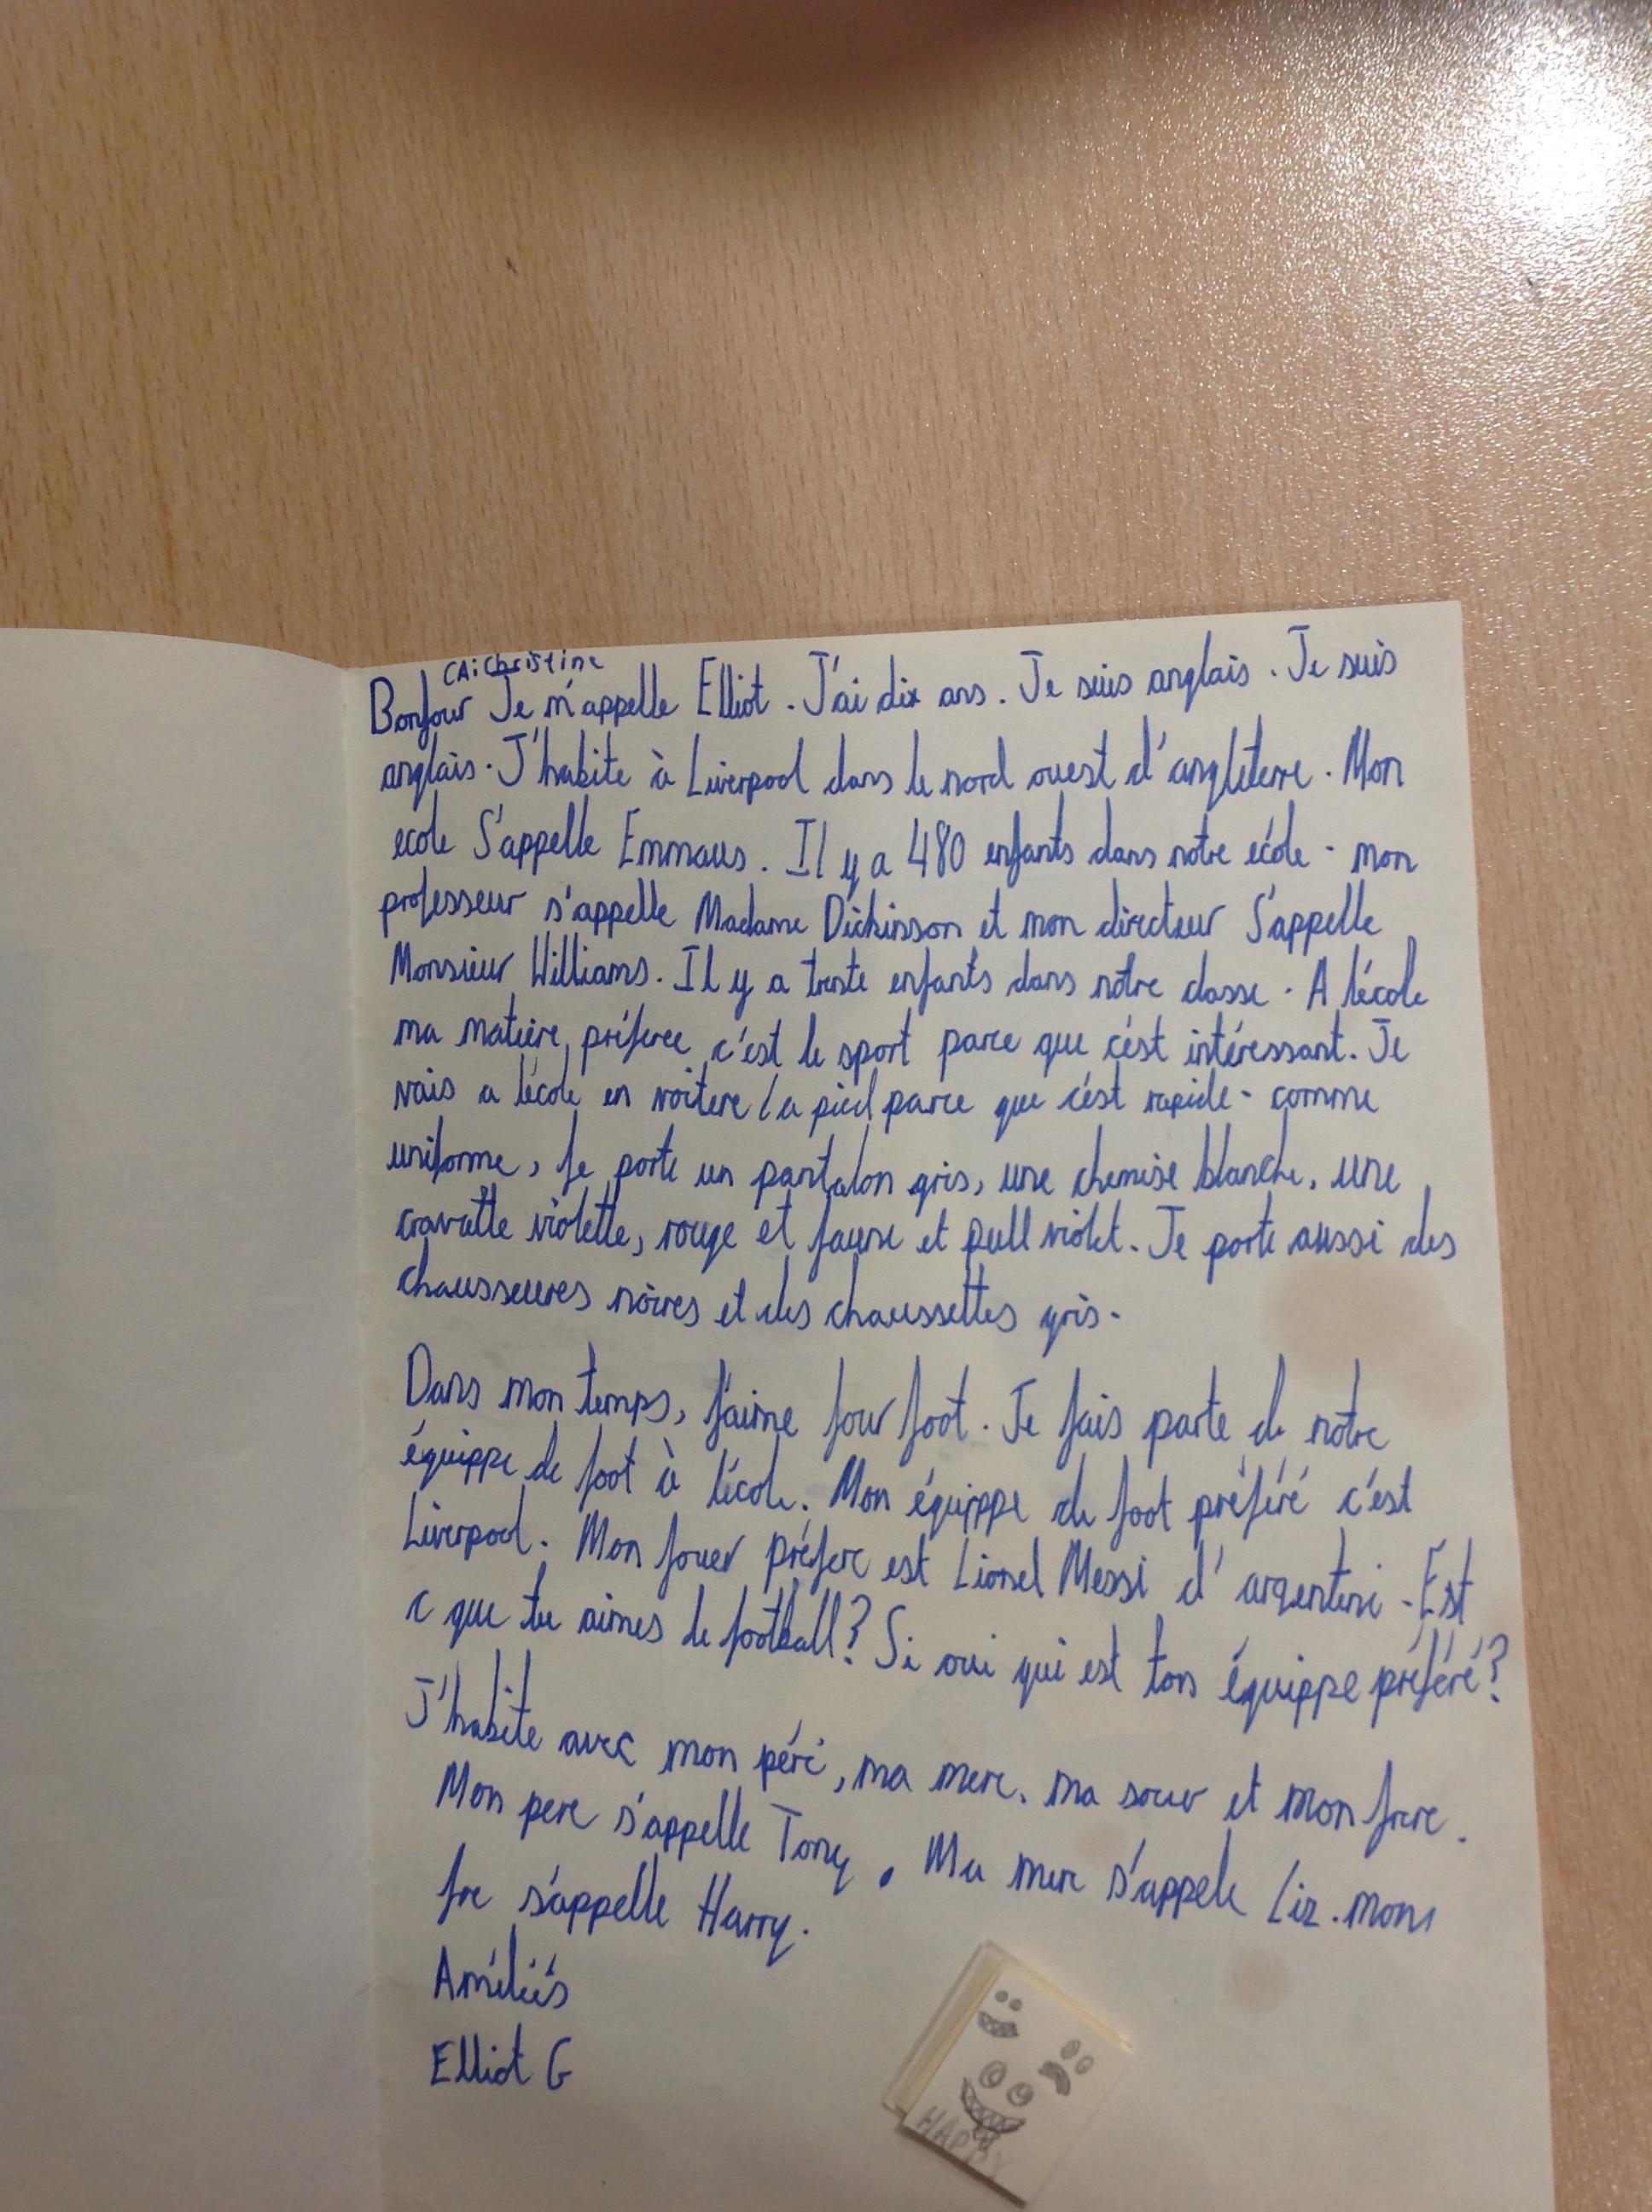 CAiChristine
Bonjour Je m'appelle Elliot. J'ai dix ans. Je suis anglais. Je suis
anglais. J'habite à Liverpool dans le nord ouest d'angleterre. Mon
ecole S'appelle Emmaus. Il y a 480 enfants dans notre ecóle - mon
professeur s'appelle Madame Dickinson et mon directeur S'appelle
Monsieur Williams. Il y a trente enfants dans nôtre classe. A l'école
ma matière préferee c'est le sport parce que c'est intéressant. Je
vais a l'école en voitere / a pied parce que c'est rapide - comme
uniforme, je porte un pantalon gris, une chemise blanche, une
cravatte violette, rouge et jaune et pull violet. Je porte aussi des
chausseures nòires et des chaussettes gris.
Dans mon temps, j'aime jour foot. Je fais parte de notre
équippe de foot à l'école. Mon équippe de foot préféré c'est
Liverpool. Mon jouer préfere est Lionel Messi d'argentine - Est
c que tu aimes le football? Si oui qui est ton équippe préféré?
J'habite avec mon péré, ma mere, ma souer et mon frere.
Mon pere s'appelle Tony. Ma mere s'appele Liz. mon
fre s'appelle Harry.
Améliés
Elliot G
HAPPY